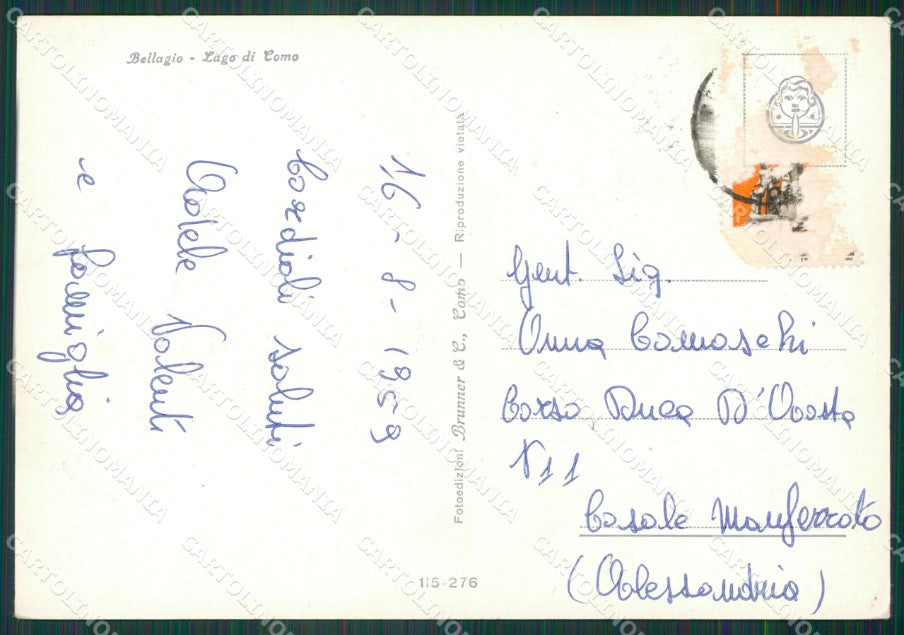 Bellagio - Lago di Como
16 - 8 - 1959
Cordiali saluti
Adele Valenti
e famiglia
Fotoedizioni Brunner & C., Como — Riproduzione vietata
Gent. Sig.
Anna Comaschi
Corso Duca D'Aosta
N 11
Casale Monferrato
(Alessandria)
115-276
CARTOLINOMANIA